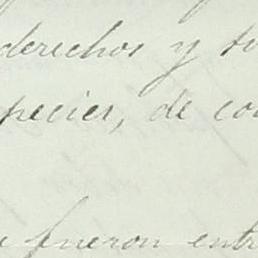 derechos y tu
pecies, de co
fueron entr